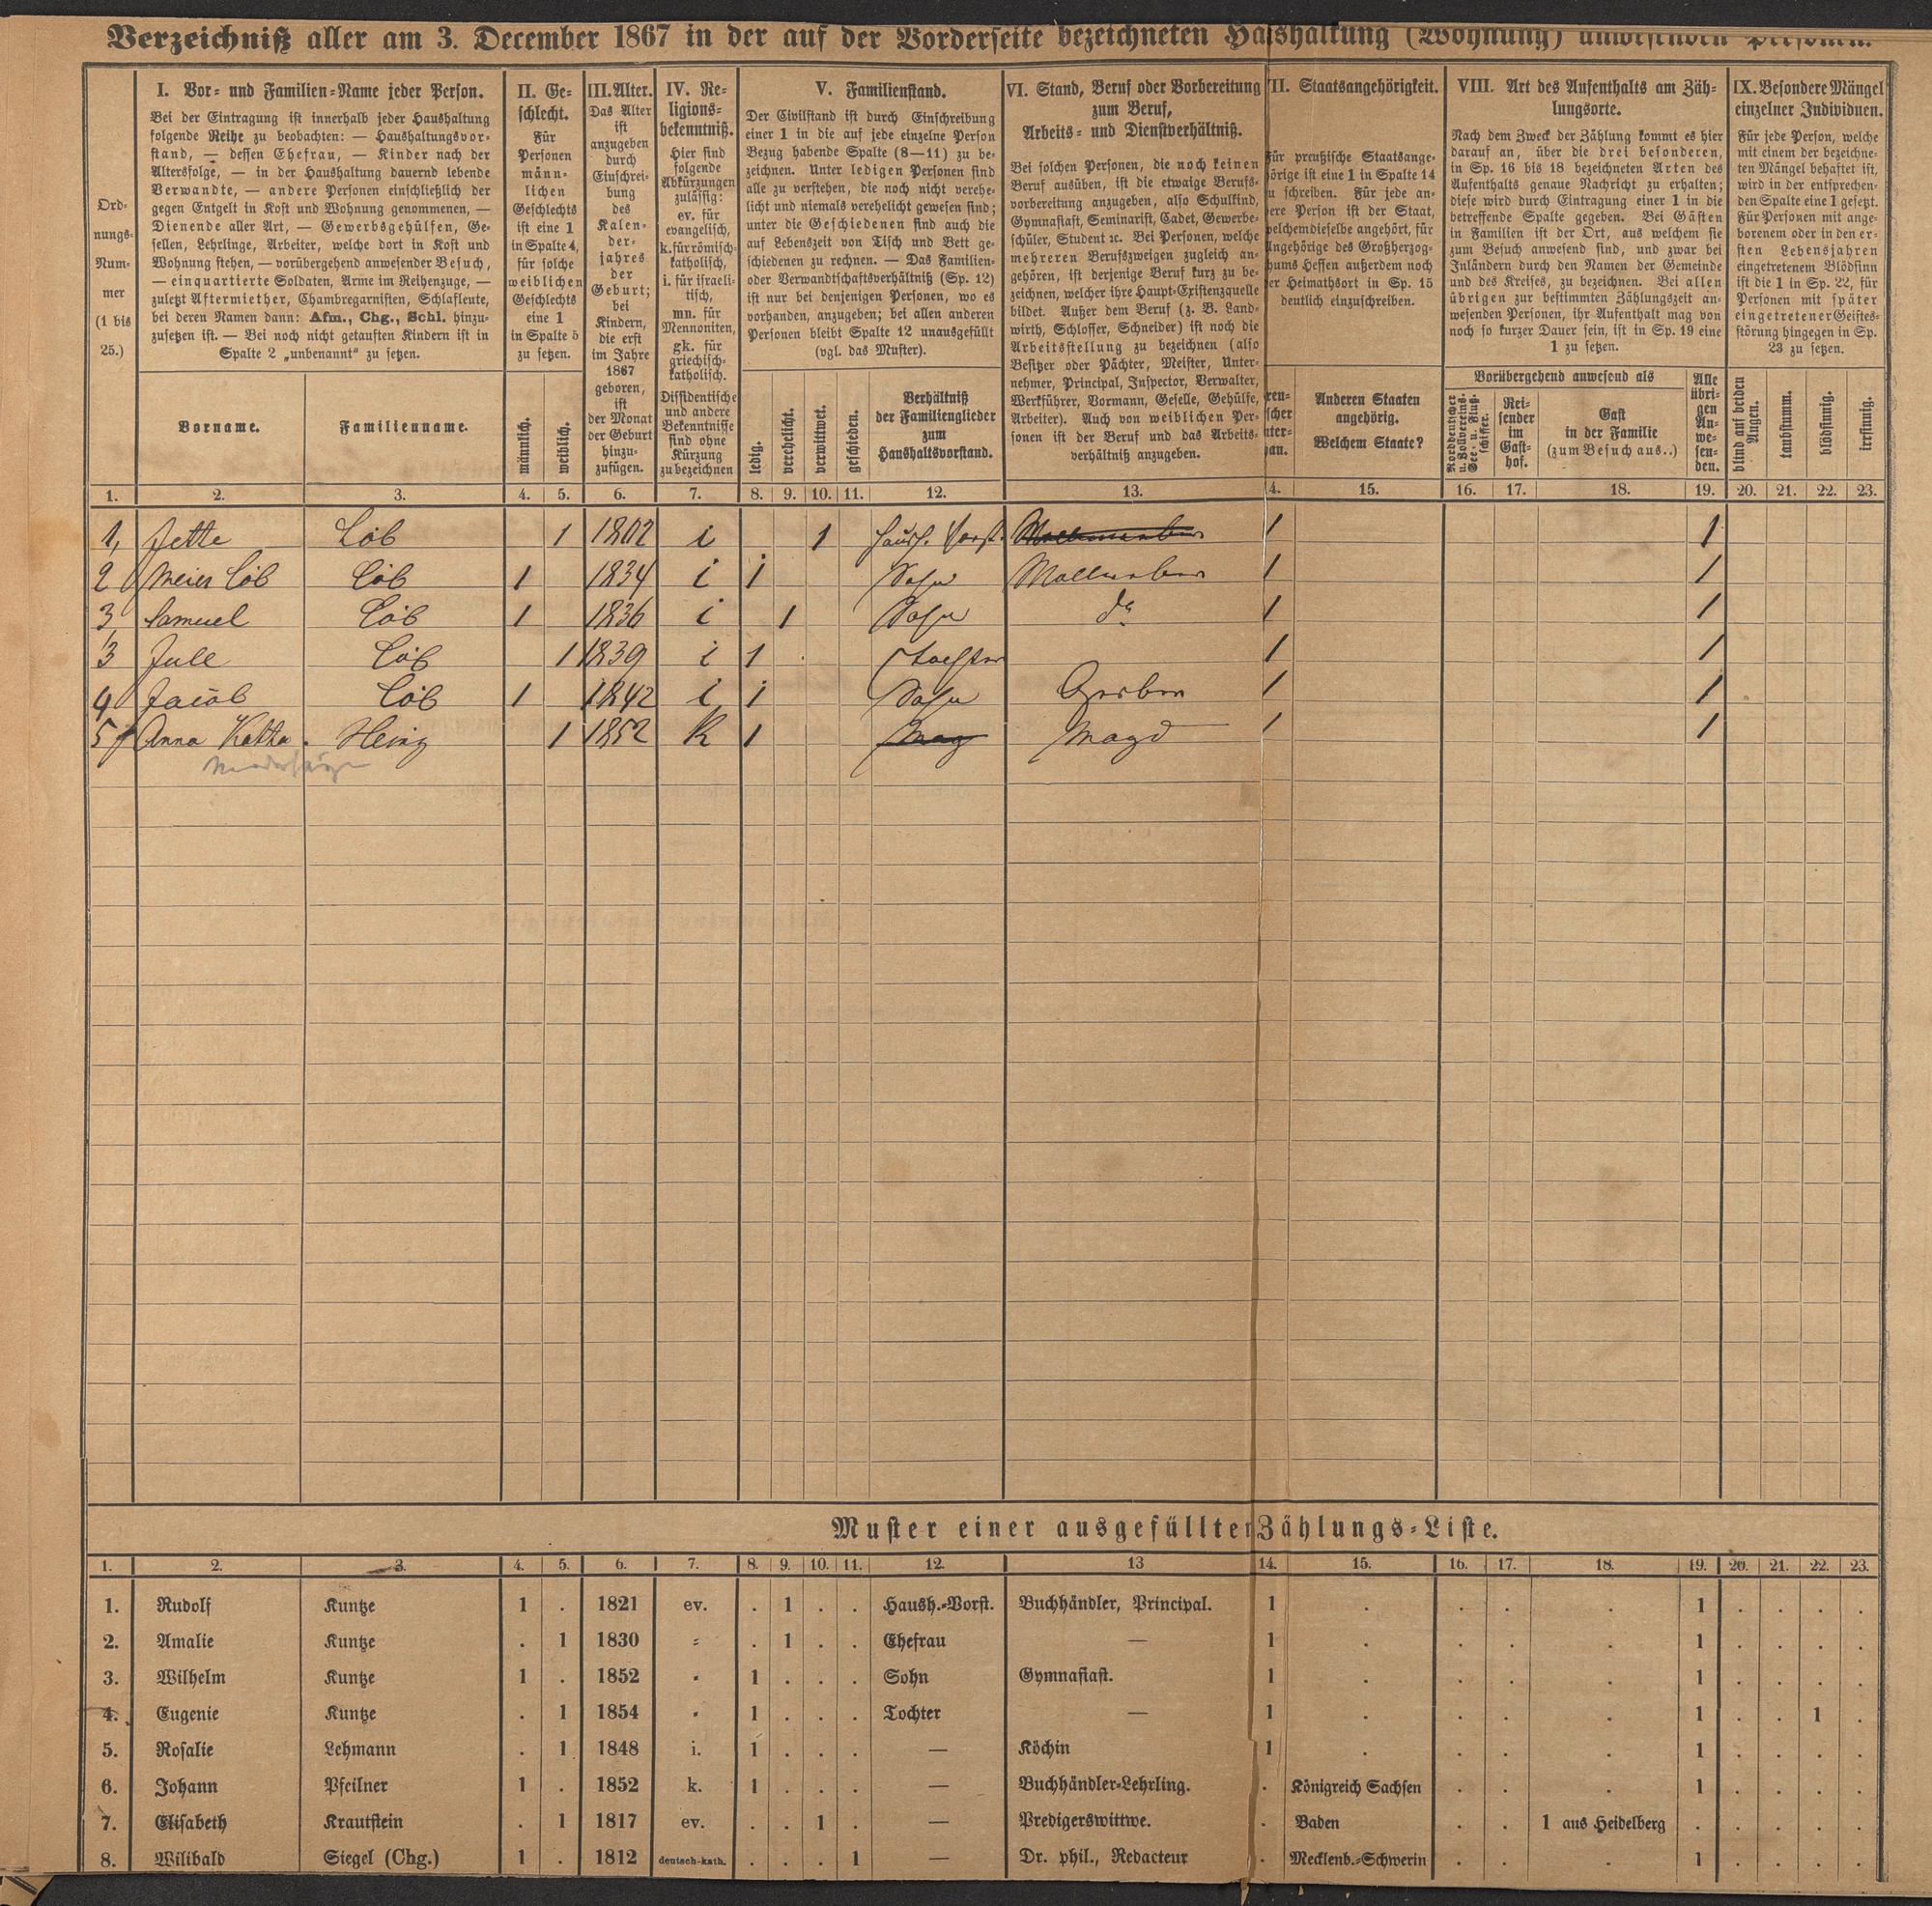 Verzeichniß aller am 3. December 1867 in der auf der Vorderseite bezeichneten Haushaltung (Wohnung) anwesenden Personen.
Ord-
nungs-
Num-
mer
(1 bis
25.)
I. Vor- und Familien-Name jeder Person.
Bei der Eintragung ist innerhalb jeder Haushaltung
folgende Reihe zu beobachten: — Haushaltungsvor-
stand, — dessen Ehefrau, — Kinder nach der
Altersfolge, — in der Haushaltung dauernd lebende
Verwandte, — andere Personen einschließlich der
gegen Entgelt in Kost und Wohnung genommenen, —
Dienende aller Art, — Gewerbsgehülfen, Ge-
sellen, Lehrlinge, Arbeiter, welche dort in Kost und
Wohnung stehen, — vorübergehend anwesender Besuch,
— einquartierte Soldaten, Arme im Reihenzuge, —
zuletzt Aftermiether, Chambregarnisten, Schlafleute,
bei deren Namen dann: Afm., Chg., Schl. hinzu-
zusetzen ist. — Bei noch nicht getauften Kindern ist in
Spalte 2 „unbenannt“ zu setzen.
Vorname.
Familienname.
II. Ge-
schlecht.
Für
Personen
männ-
lichen
Geschlechts
ist eine 1
in Spalte 4,
für solche
weiblichen
Geschlechts
eine 1
in Spalte 5
zu setzen.
männlich.
weiblich.
III. Alter.
Das Alter
ist
anzugeben
durch
Einschrei-
bung
des
Kalen-
der-
jahres
der
Geburt;
bei
Kindern,
die erst
im Jahre
1867
geboren,
ist
der Monat
der Geburt
hinzu-
zufügen.
IV. Re-
ligions-
bekenntniß.
Hier sind
folgende
Abkürzungen
zulässig:
ev. für
evangelisch,
k. für römisch-
katholisch,
i. für israeli-
tisch,
mn. für
Mennoniten,
gk. für
griechisch-
katholisch.
Dissidentische
und andere
Bekenntnisse
sind ohne
Kürzung
zu bezeichnen
V. Familienstand.
Der Civilstand ist durch Einschreibung
einer 1 in die auf jede einzelne Person
Bezug habende Spalte (8—11) zu be-
zeichnen. Unter ledigen Personen sind
alle zu verstehen, die noch nicht verehe-
licht und niemals verehelicht gewesen sind;
unter die Geschiedenen sind auch die
auf Lebenszeit von Tisch und Bett ge-
schiedenen zu rechnen. — Das Familien-
oder Verwandtschaftsverhältniß (Sp. 12)
ist nur bei denjenigen Personen, wo es
vorhanden, anzugeben; bei allen anderen
Personen bleibt Spalte 12 unausgefüllt
(vgl. das Muster).
ledig.
verehelicht.
verwittwet.
geschieden.
Verhältniß
der Familienglieder
zum
Haushaltsvorstand.
VI. Stand, Beruf oder Vorbereitung
zum Beruf,
Arbeits- und Dienstverhältniß.
Bei solchen Personen, die noch keinen
Beruf ausüben, ist die etwaige Berufs-
vorbereitung anzugeben, also Schulkind,
Gymnasiast, Seminarist, Cadet, Gewerbe-
schüler, Student ꝛc. Bei Personen, welche
mehreren Berufszweigen zugleich an-
gehören, ist derjenige Beruf kurz zu be-
zeichnen, welcher ihre Haupt-Existenzquelle
bildet. Außer dem Beruf (z. B. Land-
wirth, Schlosser, Schneider) ist noch die
Arbeitsstellung zu bezeichnen (also
Besitzer oder Pächter, Meister, Unter-
nehmer, Principal, Inspector, Verwalter,
Werkführer, Vormann, Geselle, Gehülfe,
Arbeiter). Auch von weiblichen Per-
sonen ist der Beruf und das Arbeits-
verhältniß anzugeben.
II. Staatsangehörigkeit.
für preußische Staatsange-
hörige ist eine 1 in Spalte 14
u schreiben. Für jede an-
ere Person ist der Staat,
welchem dieselbe angehört, für
Angehörige des Großherzog-
hums Hessen außerdem noch
er Heimathsort in Sp. 15
deutlich einzuschreiben.
ren-
scher
nter-
han.
Anderen Staaten
angehörig.
Welchem Staate?
VIII. Art des Aufenthalts am Zäh-
lungsorte.
Nach dem Zweck der Zählung kommt es hier
darauf an, über die drei besonderen,
in Sp. 16 bis 18 bezeichneten Arten des
Aufenthalts genaue Nachricht zu erhalten;
diese wird durch Eintragung einer 1 in die
betreffende Spalte gegeben. Bei Gästen
in Familien ist der Ort, aus welchem sie
zum Besuch anwesend sind, und zwar bei
Inländern durch den Namen der Gemeinde
und des Kreises, zu bezeichnen. Bei allen
übrigen zur bestimmten Zählungszeit an-
wesenden Personen, ihr Aufenthalt mag von
noch so kurzer Dauer sein, ist in Sp. 19 eine
1 zu setzen.
Vorübergehend anwesend als
Norddeutscher
u. Zollvereins-
See- u. Fluß-
schiffer.
Rei-
sender
im
Gast-
hof.
Gast
in der Familie
(zum Besuch aus..)
Alle
übri-
gen
An-
we-
sen-
den.
IX. Besondere Mängel
einzelner Individuen.
Für jede Person, welche
mit einem der bezeichne-
ten Mängel behaftet ist,
wird in der entsprechen-
den Spalte eine 1 gesetzt.
Für Personen mit ange-
borenem oder in den er-
sten Lebensjahren
eingetretenem Blödsinn
ist die 1 in Sp. 22, für
Personen mit später
eingetretener Geistes-
störung hingegen in Sp.
23 zu setzen.
blind auf beiden
Augen.
taubstumm.
blödsinnig.
irrsinnig.
1. 2. 3. 4. 5. 6. 7. 8. 9. 10. 11. 12. 13. 4. 15. 16. 17. 18. 19. 20. 21. 22. 23.
1, Jette Löb 1 1802 i 1 Haush. Vorst. 1 1
2 Meier Löb Löb 1 1834 i 1 Sohn 1 1
3 Samuel Löb 1 1836 i 1 Sohn do 1 1
3 Jule Löb 1 1839 i 1 Tochter 1 1
4 Jacob Löb 1 1842 i 1 Sohn Gerber 1 1
5 Anna Katha. 1 1852 K 1 Mag Magd 1 1
Muster einer ausgefüllten Zählungs-Liste.
1. 2. 3. 4. 5. 6. 7. 8. 9. 10. 11. 12. 13 14. 15. 16. 17. 18. 19. 20. 21. 22. 23.
1. Rudolf Kuntze 1 . 1821 ev. . 1 . . Haush.-Vorst. Buchhändler, Principal. 1 . . . . 1 . . . .
2. Amalie Kuntze . 1 1830 = . 1 . . Ehefrau — 1 . . . . 1 . . . .
3. Wilhelm Kuntze 1 . 1852 " 1 . . . Sohn Gymnasiast. 1 . . . . 1 . . . .
4. Eugenie Kuntze . 1 1854 " 1 . . . Tochter — 1 . . . . 1 . . 1 .
5. Rosalie Lehmann . 1 1848 i. 1 . . . — Köchin 1 . . . . 1 . . . .
6. Johann Pfeilner 1 . 1852 k. 1 . . . — Buchhändler-Lehrling. . Königreich Sachsen . . . 1 . . . .
7. Elisabeth Krautstein . 1 1817 ev. . . 1 . — Predigerswittwe. . Baden . . 1 aus Heidelberg . . . . .
8. Wilibald Siegel (Chg.) 1 . 1812 deutsch-kath. . . . 1 — Dr. phil., Redacteur . Mecklenb.-Schwerin . . . 1 . . . .